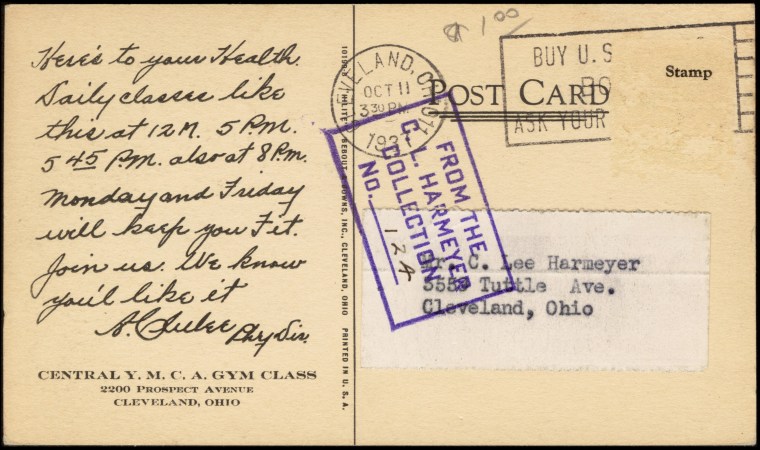 Here's to your Health.
Daily classes like
this at 12 M. 5 P.M.
5 45 P.M. also at 8 P.m.
Monday and Friday
will keep you Fit.
Join us. We know
you'll like it
Phy Dir.
CENTRAL Y. M. C. A. GYM CLASS
2200 PROSPECT AVENUE
CLEVELAND, OHIO
INC., CLEVELAND, OHIO PRINTED IN U. S. A.
CLEVELAND, OHIO
OCT 11
3 30 PM
$1.00
POST CARD
BUY U.S
BO
ASK YOUR
Stamp
FROM THE
C. L. HARMEYER
COLLECTION
No. 12A
Mr. C. Lee Harmeyer
Tuttle Ave.
Cleveland, Ohio